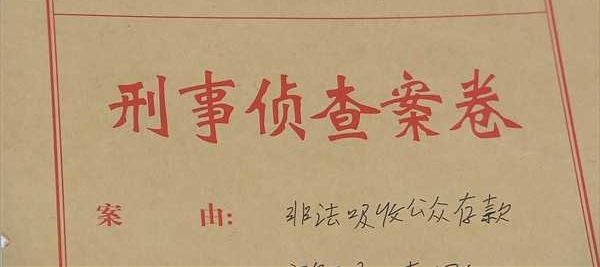 刑事侦查案卷
案 由: 非法吸收公众存款